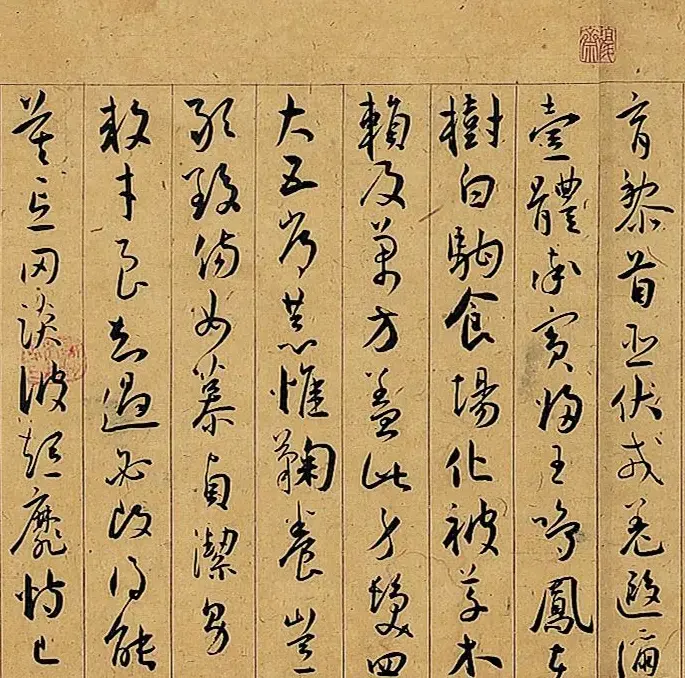 育黎首臣伏戎羌遐邇
壹體率賓歸王鳴鳳在
樹白駒食場化被草木
賴及萬方蓋此身髮四
大五常恭惟鞠養豈
敢毀傷女慕貞潔男
效才良知過必改得能
莫忘罔談彼短靡恃己